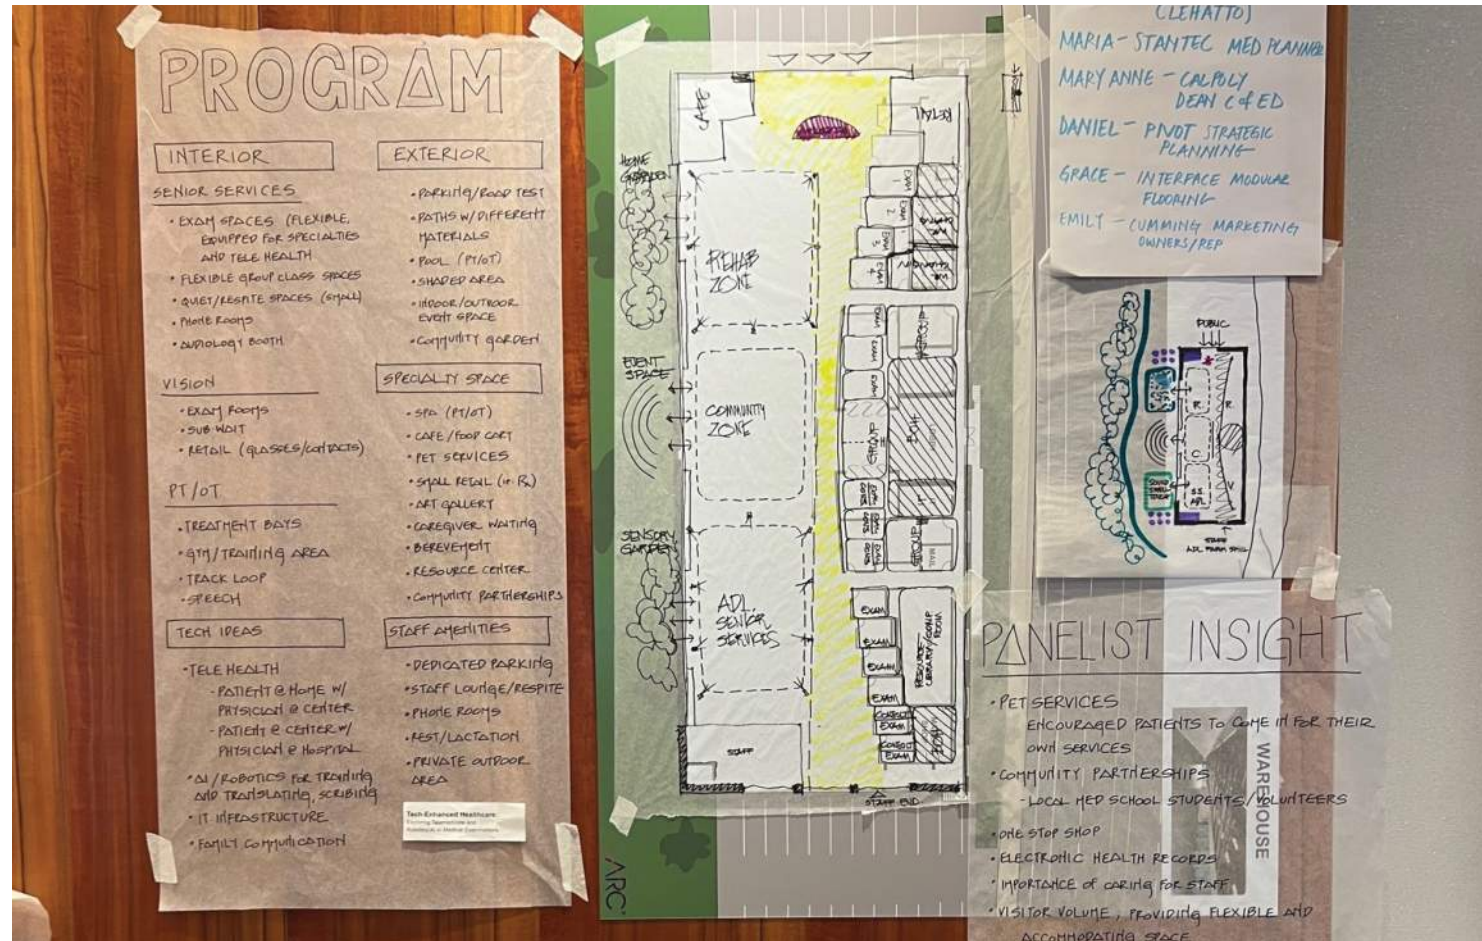 PROGRAM
INTERIOR
SENIOR SERVICES
• EXAM SPACES (FLEXIBLE,
EQUIPPED FOR SPECIALTIES
AND TELE HEALTH
• FLEXIBLE GROUP CLASS SPACES
• QUIET/RESPITE SPACES (SMALL)
• PHONE ROOMS
• AUDIOLOGY BOOTH
VISION
• EXAM ROOMS
• SUB WAIT
• RETAIL (GLASSES/CONTACTS)
PT/OT
• TREATMENT BAYS
• GYM/TRAINING AREA
• TRACK LOOP
• SPEECH
TECH IDEAS
• TELE HEALTH
- PATIENT @ HOME W/
PHYSICIAN @ CENTER
- PATIENT @ CENTER W/
PHYSICIAN @ HOSPITAL
• AI/ROBOTICS FOR TRAINING
AND TRANSLATING, SCRIBING
• IT INFRASTRUCTURE
• FAMILY COMMUNICATION
EXTERIOR
• PARKING/ROAD TEST
• PATHS W/ DIFFERENT
MATERIALS
• POOL (PT/OT)
• SHADED AREA
• INDOOR/OUTDOOR
EVENT SPACE
• COMMUNITY GARDEN
SPECIALTY SPACE
• SPA (PT/OT)
• CAFE/FOOD CART
• PET SERVICES
• SMALL RETAIL (ie. Rx)
• ART GALLERY
• CAREGIVER WAITING
• BEREVEMENT
• RESOURCE CENTER
• COMMUNITY PARTNERSHIPS
STAFF AMENITIES
• DEDICATED PARKING
• STAFF LOUNGE/RESPITE
• PHONE ROOMS
• REST/LACTATION
• PRIVATE OUTDOOR
AREA
Tech-Enhanced Healthcare:
CAFE
RETAIL
HOME
GARDEN
REHAB
ZONE
EXAM
1
EXAM
2
EXAM
3
EXAM
4
EVENT
SPACE
COMMUNITY
ZONE
EXAM
EXAM
EXAM
GROUP
GROUP
BOH
SENSORY
GARDEN
ADL
SENIOR
SERVICES
GROUP
MAIL
EXAM
EXAM
EXAM
EXAM
RESOURCE
LIBRARY/COMP.
ROOM
CONTACT
EXAM
CONTACT
EXAM
STAFF
STAFF END
ARC
(LEHATTO)
MARIA - STANTEC MED PLANNER
MARY ANNE - CALPOLY
DEAN C of ED
DANIEL - PIVOT STRATEGIC
PLANNING
GRACE - INTERFACE MODULAR
FLOORING
EMILY - CUMMING MARKETING
OWNERS/REP
PUBLIC
R.
R.
C.
S.S.
ADL
V.
STAFF
PANELIST INSIGHT
• PET SERVICES
ENCOURAGED PATIENTS TO COME IN FOR THEIR
OWN SERVICES
• COMMUNITY PARTNERSHIPS
- LOCAL MED SCHOOL STUDENTS/VOLUNTEERS
• ONE STOP SHOP
• ELECTRONIC HEALTH RECORDS
• IMPORTANCE OF CARING FOR STAFF
• VISITOR VOLUME, PROVIDING FLEXIBLE AND
ACCOMMODATING SPACE
WAREHOUSE